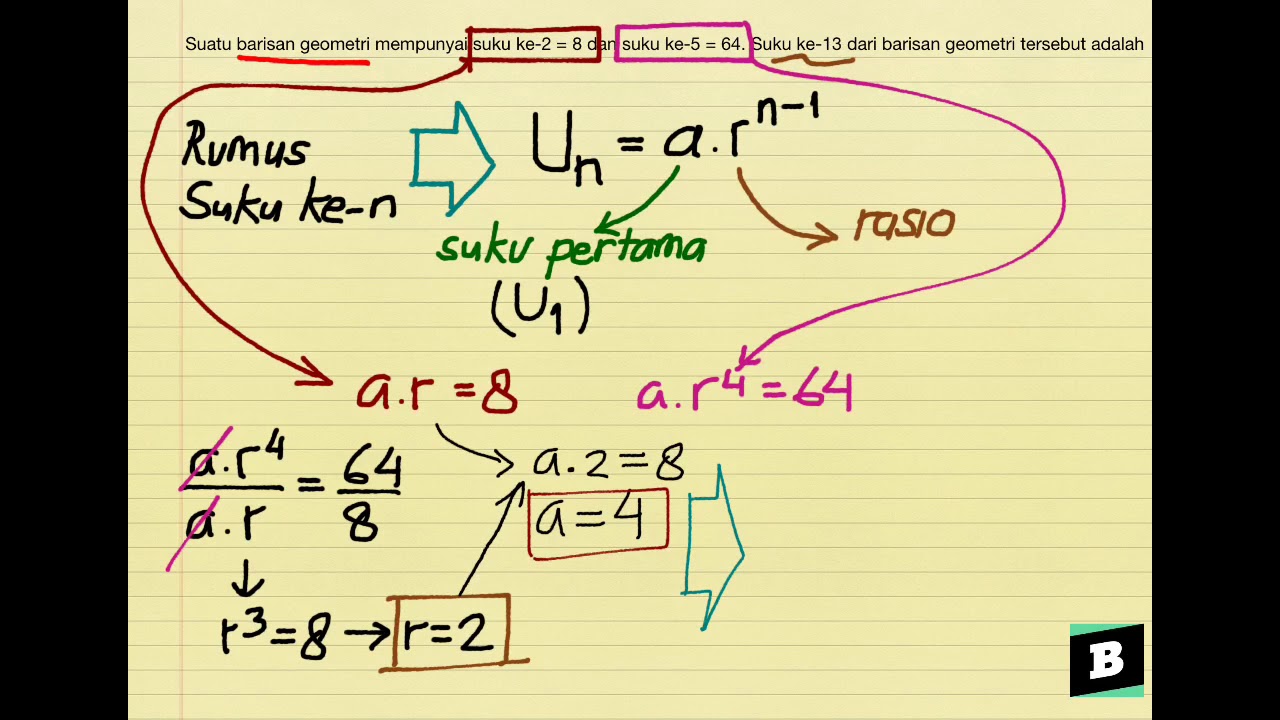 Suatu barisan geometri mempunyai suku ke-2 = 8 dan suku ke-5 = 64. Suku ke-13 dari barisan geometri tersebut adalah
Rumus
Suku ke-n
Uₙ = a.rⁿ⁻¹
suku pertama
(U₁)
rasio
a.r = 8
a.r⁴ = 64
a.r⁴/a.r = 64/8
r³ = 8 → r = 2
a.2 = 8
a = 4
B